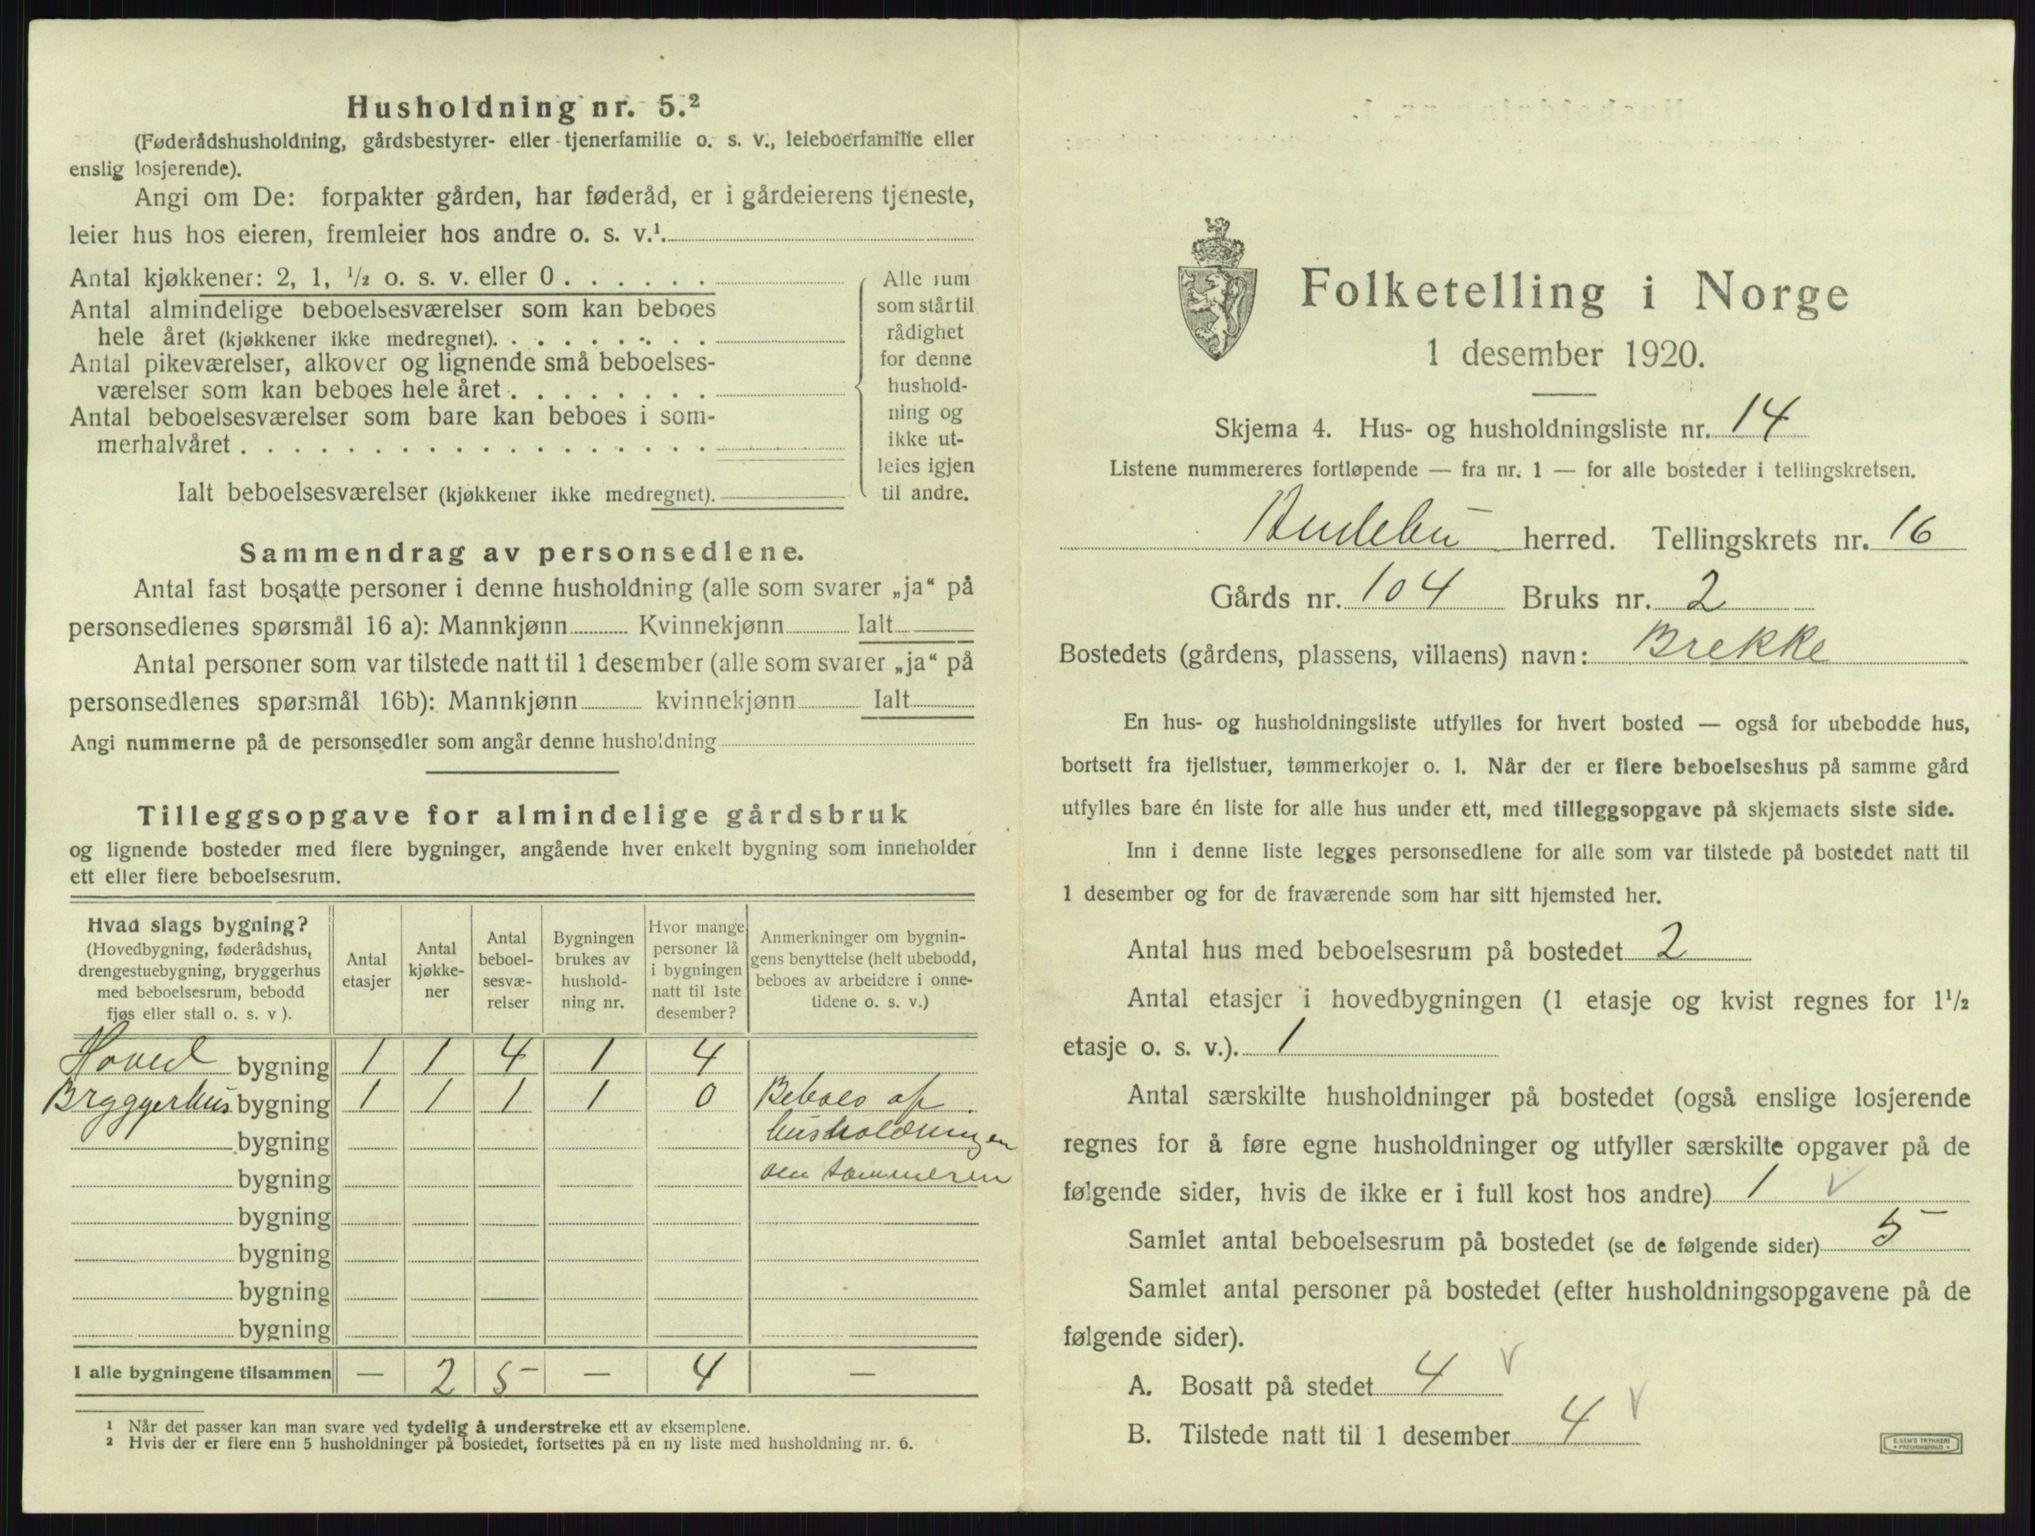 Husholdning nr. 5.²
(Føderådshusholdning, gårdsbestyrer- eller tjenerfamilie o. s. v., leieboerfamilie eller
enslig losjerende).
Angi om De: forpakter gården, har føderåd, er i gårdeierens tjeneste,
leier hus hos eieren, fremleier hos andre o. s. v.¹.
Antal kjøkkener: 2, 1, ½ o. s. v. eller 0 . . . . . .
Antal almindelige beboelsesværelser som kan beboes
hele året (kjøkkener ikke medregnet). . . . . . . . .
Antal pikeværelser, alkover og lignende små beboelses-
værelser som kan beboes hele året . . . . . . . .
Antal beboelsesværelser som bare kan beboes i som-
merhalvåret . . . . . . . . . . . . . . . . . .
Ialt beboelsesværelser (kjøkkener ikke medregnet).
Alle rum
som står til
rådighet
for denne
hushold-
ning og
ikke ut-
leies igjen
til andre.
Sammendrag av personsedlene.
Antal fast bosatte personer i denne husholdning (alle som svarer „ja“ på
personsedlenes spørsmål 16 a): Mannkjønn Kvinnekjønn Ialt
Antal personer som var tilstede natt til 1 desember (alle som svarer „ja“ på
personsedlenes spørsmål 16b): Mannkjønn kvinnekjønn Ialt
Angi nummerne på de personsedler som angår denne husholdning
Tilleggsopgave for almindelige gårdsbruk
og lignende bosteder med flere bygninger, angående hver enkelt bygning som inneholder
ett eller flere beboelsesrum.
Hvad slags bygning?
(Hovedbygning, føderådshus,
drengestuebygning, bryggerhus
med beboelsesrum, bebodd
fjøs eller stall o. s. v ).
Antal
etasjer
Antal
kjøkke-
ner
Antal
beboel-
sesvæ-
relser
Bygningen
brukes av
hushold-
ning nr.
Hvor mange
personer lå
i bygningen
natt til 1ste
desember?
Anmerkninger om bygnin-
gens benyttelse (helt ubebodd,
beboes av arbeidere i onne-
tidene o. s. v.)
Hoved bygning 1 1 4 1 4
Bryggerhus bygning 1 1 1 1 0 Beboes af
bygning husholdningen
bygning om sommeren
bygning
bygning
bygning
bygning
I alle bygningene tilsammen — 2 5 — 4 —
¹ Når det passer kan man svare ved tydelig å understreke ett av eksemplene.
² Hvis der er flere enn 5 husholdninger på bostedet, fortsettes på en ny liste med husholdning nr. 6.
Folketelling i Norge
1 desember 1920.
Skjema 4. Hus- og husholdningsliste nr. 14
Listene nummereres fortløpende — fra nr. 1 — for alle bosteder i tellingskretsen.
Andebu herred. Tellingskrets nr. 16
Gårds nr. 104 Bruks nr. 2
Bostedets (gårdens, plassens, villaens) navn: Brekke
En hus- og husholdningsliste utfylles for hvert bosted — også for ubebodde hus,
bortsett fra fjellstuer, tømmerkojer o. l. Når der er flere beboelseshus på samme gård
utfylles bare én liste for alle hus under ett, med tilleggsopgave på skjemaets siste side.
Inn i denne liste legges personsedlene for alle som var tilstede på bostedet natt til
1 desember og for de fraværende som har sitt hjemsted her.
Antal hus med beboelsesrum på bostedet 2
Antal etasjer i hovedbygningen (1 etasje og kvist regnes for 1½
etasje o. s. v.). 1
Antal særskilte husholdninger på bostedet (også enslige losjerende
regnes for å føre egne husholdninger og utfyller særskilte opgaver på de
følgende sider, hvis de ikke er i full kost hos andre) 1 ✓
Samlet antal beboelsesrum på bostedet (se de følgende sider) 5
Samlet antal personer på bostedet (efter husholdningsopgavene på de
følgende sider).
A. Bosatt på stedet 4 ✓
B. Tilstede natt til 1 desember 4 ✓